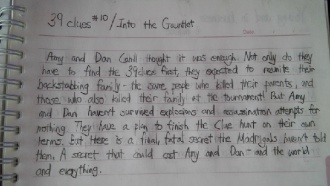 39 clues #10 / Into the Gauntlet
Amy and Dan Cahill thought it was enough. Not only do they
have to find the 39 clues first, they expected to reunite their
backstabbing family - the same people who killed their parents, and
those who also killed their family at the tournament! But Amy
and Dan havent survived explosions and assassination attempts for
nothing. They have a plan to finish the Clue hunt on their own
terms. but there is a final, fatal secret the Madrigals haven't told
them. A secret that could cost Amy and Dan - and the world
and everything.